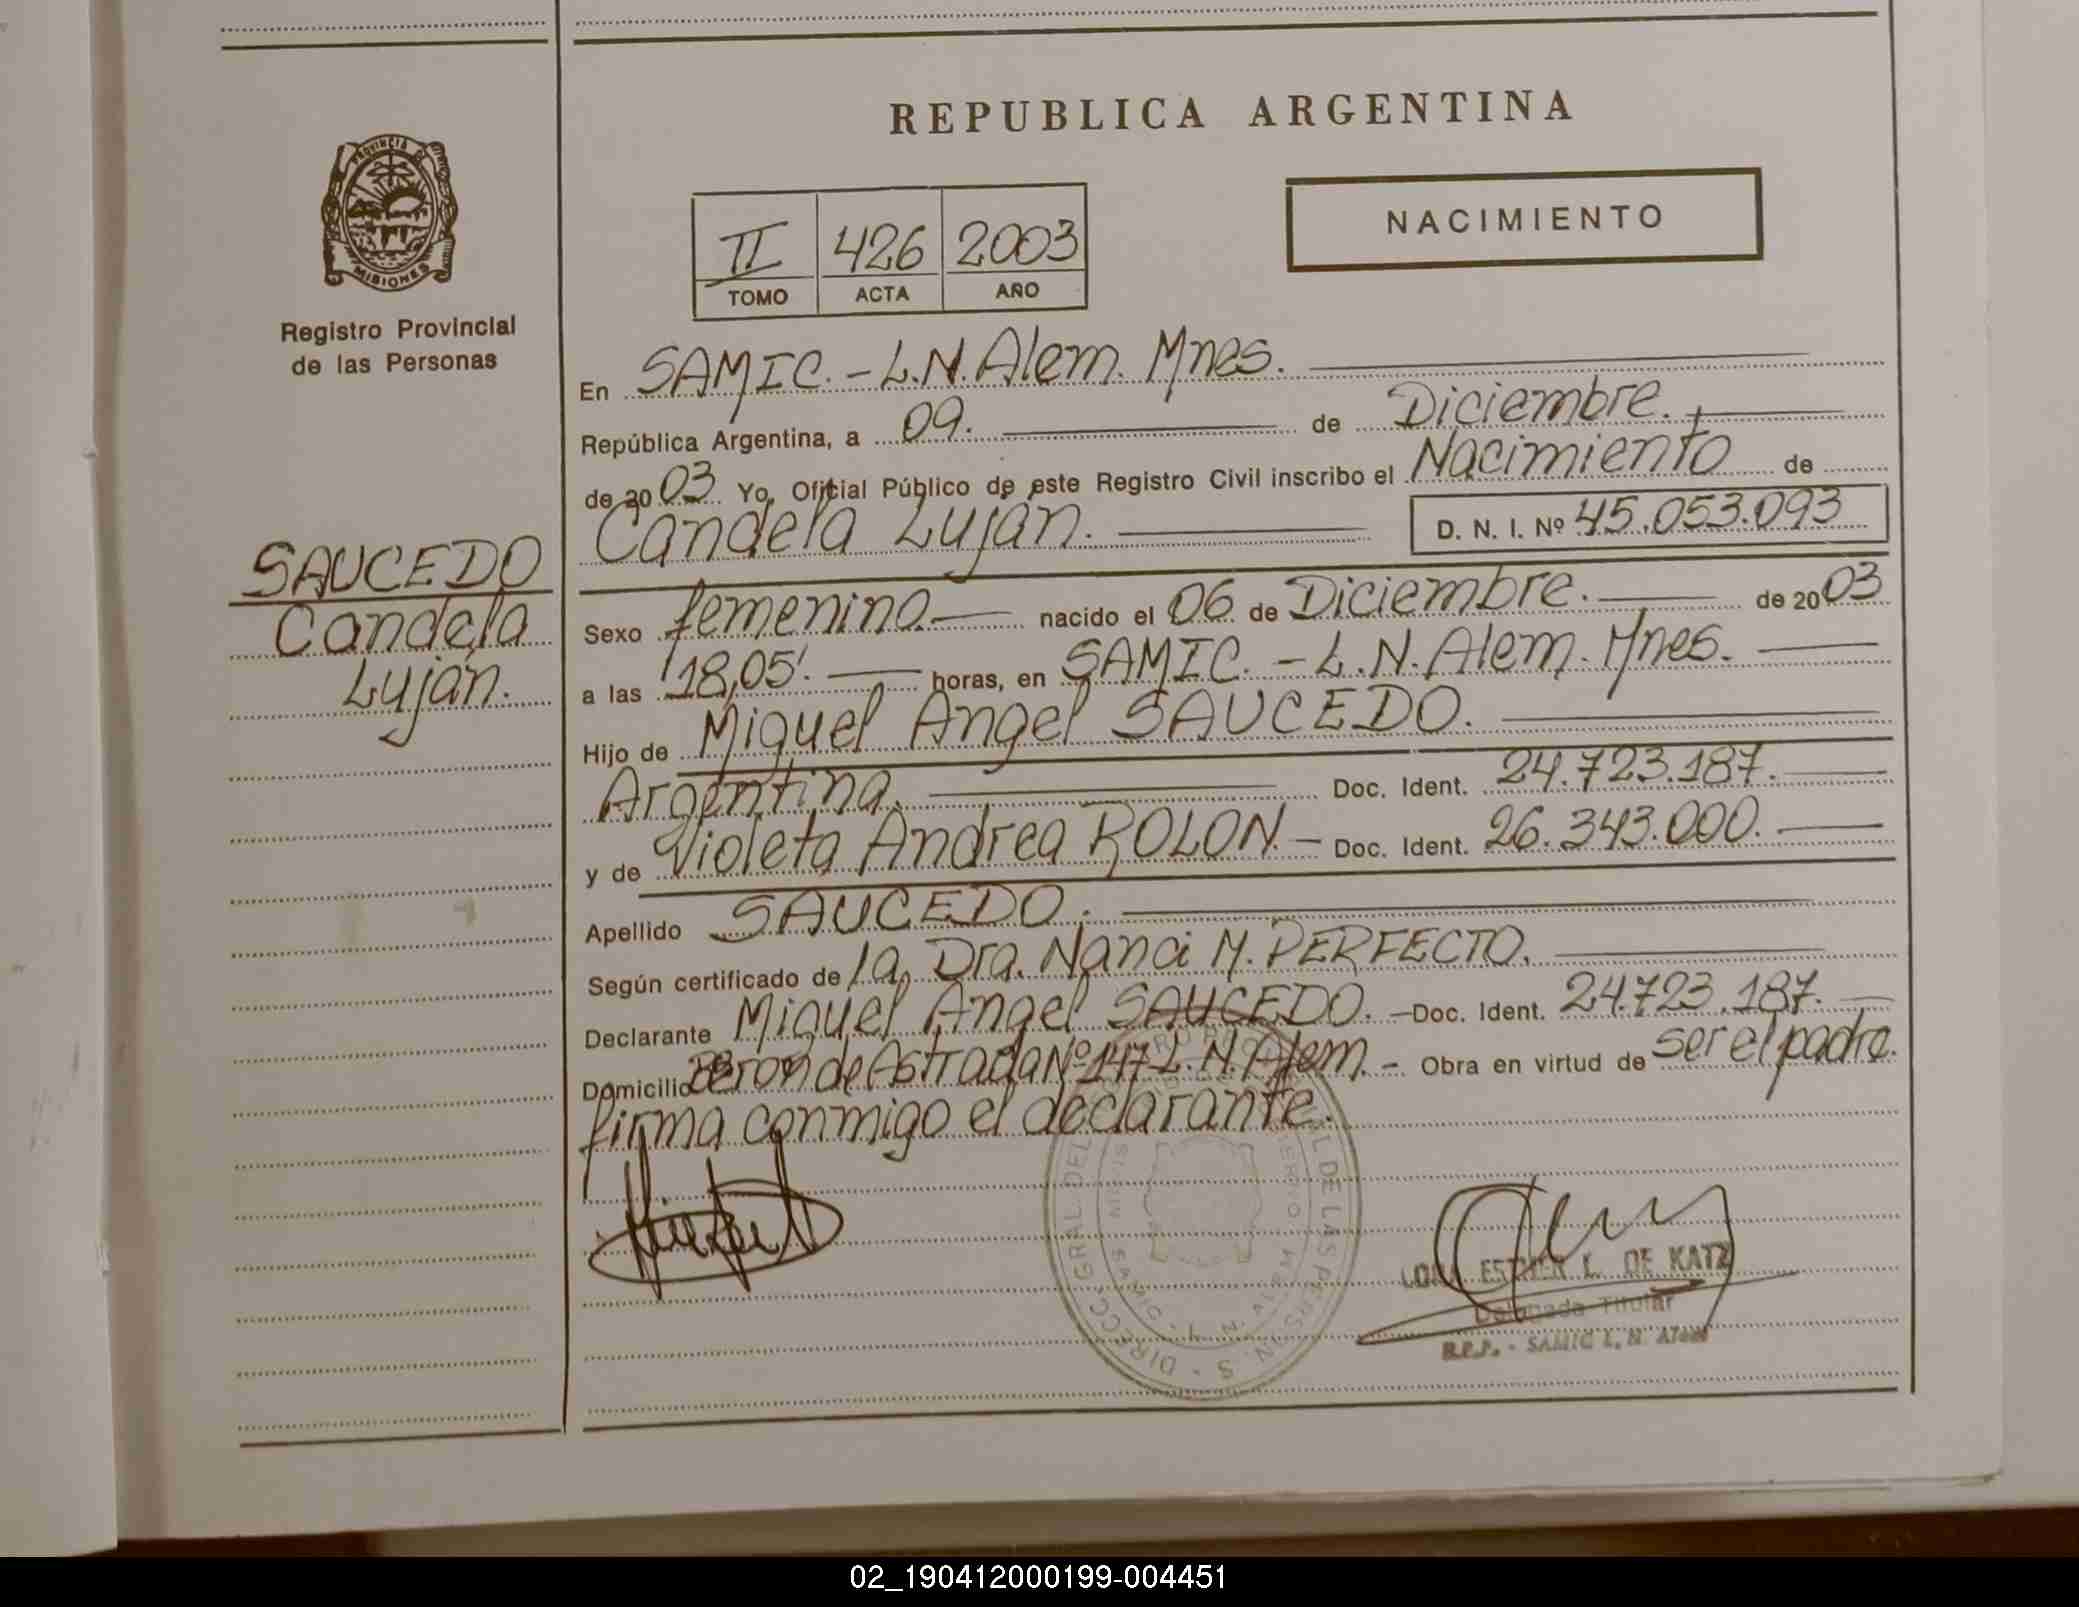 REPUBLICA ARGENTINA
PROVINCIA DE
MISIONES
Registro Provincial
de las Personas
NACIMIENTO
II 426 2003
TOMO ACTA AÑO
En SAMIC. - L.N. Alem. Mnes.
República Argentina, a 09. de Diciembre.
de 2003 Yo, Oficial Público de este Registro Civil inscribo el Nacimiento de
Candela Luján. D. N. I. Nº 45.053.093
SAUCEDO
Candela
Luján.
Sexo femenino. nacido el 06 de Diciembre. de 2003
a las 18,05'. horas, en SAMIC. - L.N. Alem. Mnes.
Hijo de Miguel Angel SAUCEDO.
Argentina. Doc. Ident. 24.723.187.
y de Violeta Andrea ROLON. - Doc. Ident. 26.343.000.
Apellido SAUCEDO.
Según certificado de la Dra. Nanci M. PERFECTO.
Declarante Miguel Angel SAUCEDO. - Doc. Ident. 24.723.187.
Domicilio Beron de Astrada Nº 147 L.N. Alem. - Obra en virtud de ser el padre.
firma conmigo el declarante.
ESTHER L. DE KATZ
Delegada Titular
R.P.P. - SAMIC L. N. Alem
02_190412000199-004451